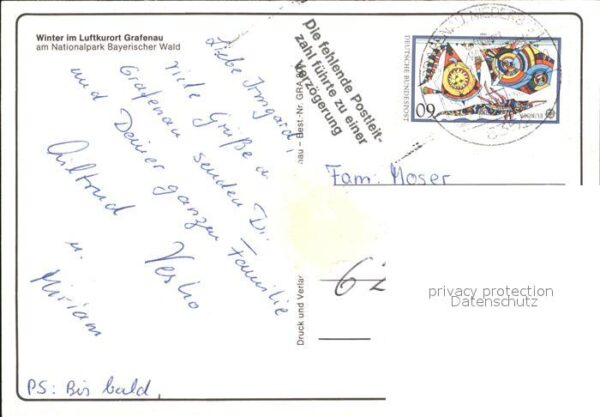 Winter im Luftkurort Grafenau
am Nationalpark Bayerischer Wald
Liebe Irmgard,
viele Grüße a.
Grafenau senden Dir
und Deiner ganzen Familie
Wiltrud Vesko
u.
Miriam
PS: Bis bald,
Die fehlende Postleit-
zahl führte zu einer
Verzögerung
Druck und Verlag
nau – Best.-Nr. GRA
DEUTSCHE BUNDESPOST
60
EUROPA
Fam. Moser
privacy protection
Datenschutz